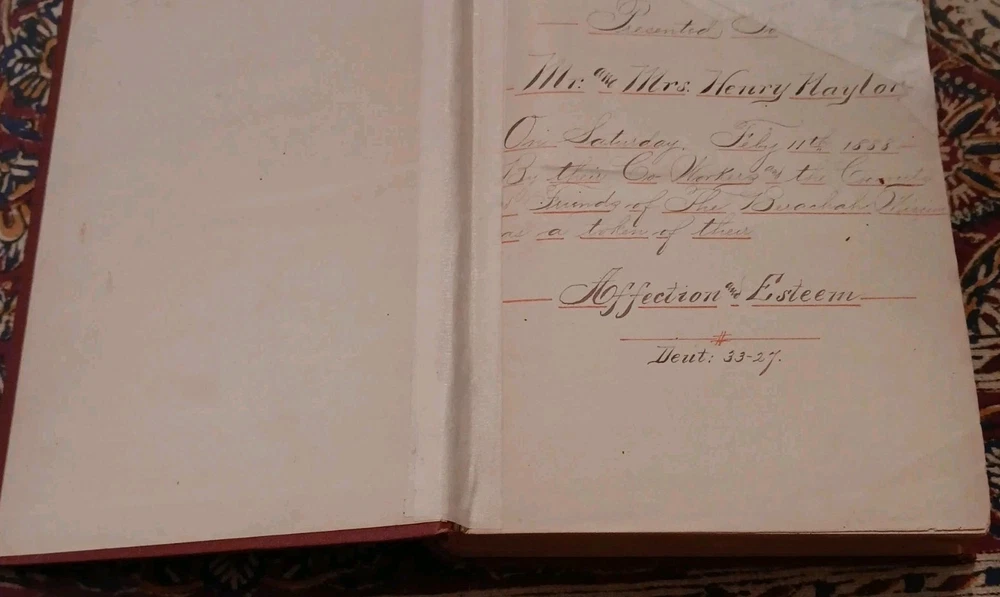 Presented To
Mr. and Mrs. Henry Naylor
On Saturday. Feby 11th 1888
By their Co Workers and the
Friends of The
as a token of their
Affection and Esteem
Deut: 33-27.